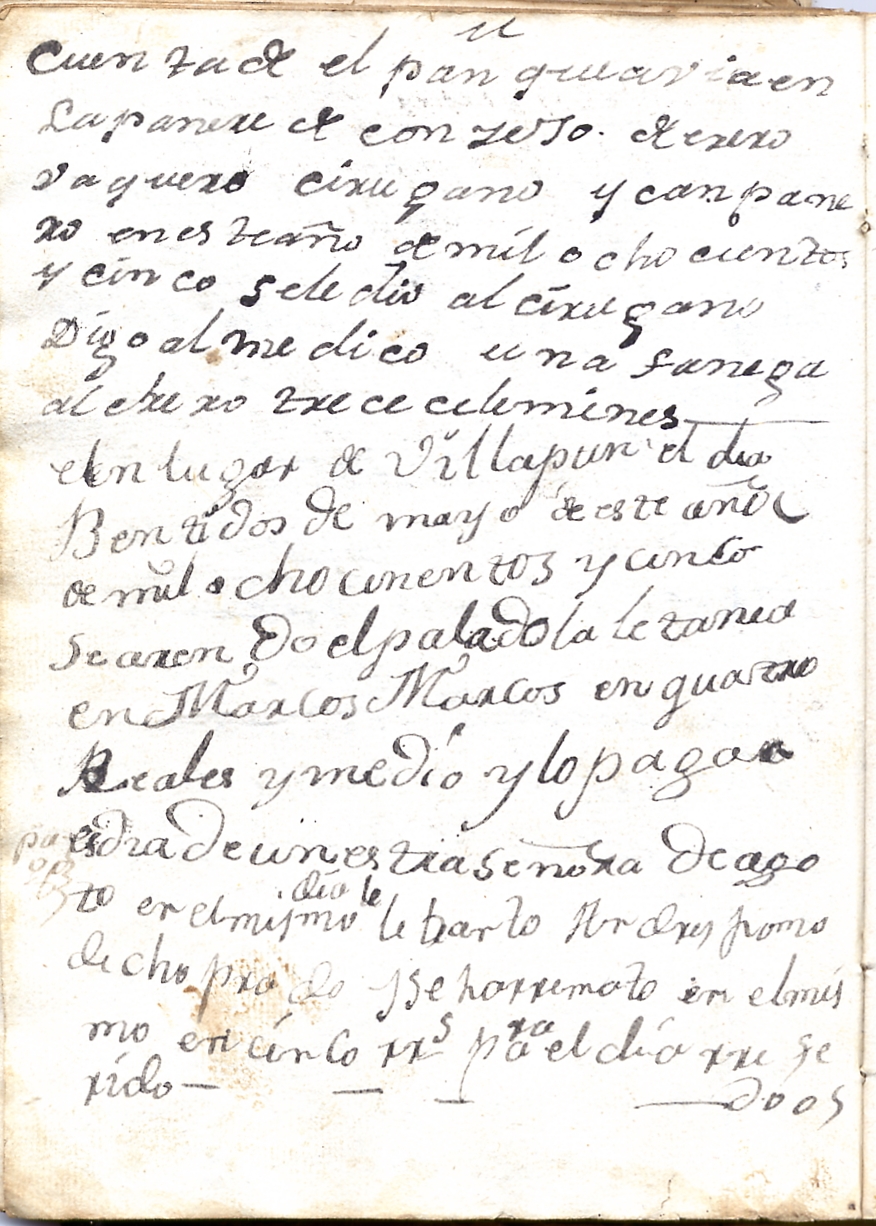 cuenta de el pan que avia en
La panera de conzejo. de erero
vaquero cirugano y canpane
ro en este año de mil ochocientos
y cinco se le dio al cirugano
Digo al medico una fanega
al erero trece celemines
en lugar de Villapun el dia
Bentidos de mayo de este año
de mil ochocinentos y cinco
se aren Do el palado la letania
en Marcos Marcos en quatro
Reales y medio y lo paga a
el dia de unestra señora de ago
to en el mismo dia le le barto Andres pomo
dicho prado y se harremato en el mis
mo en cinco rrs para el dia rre fe
rido — — — — doos